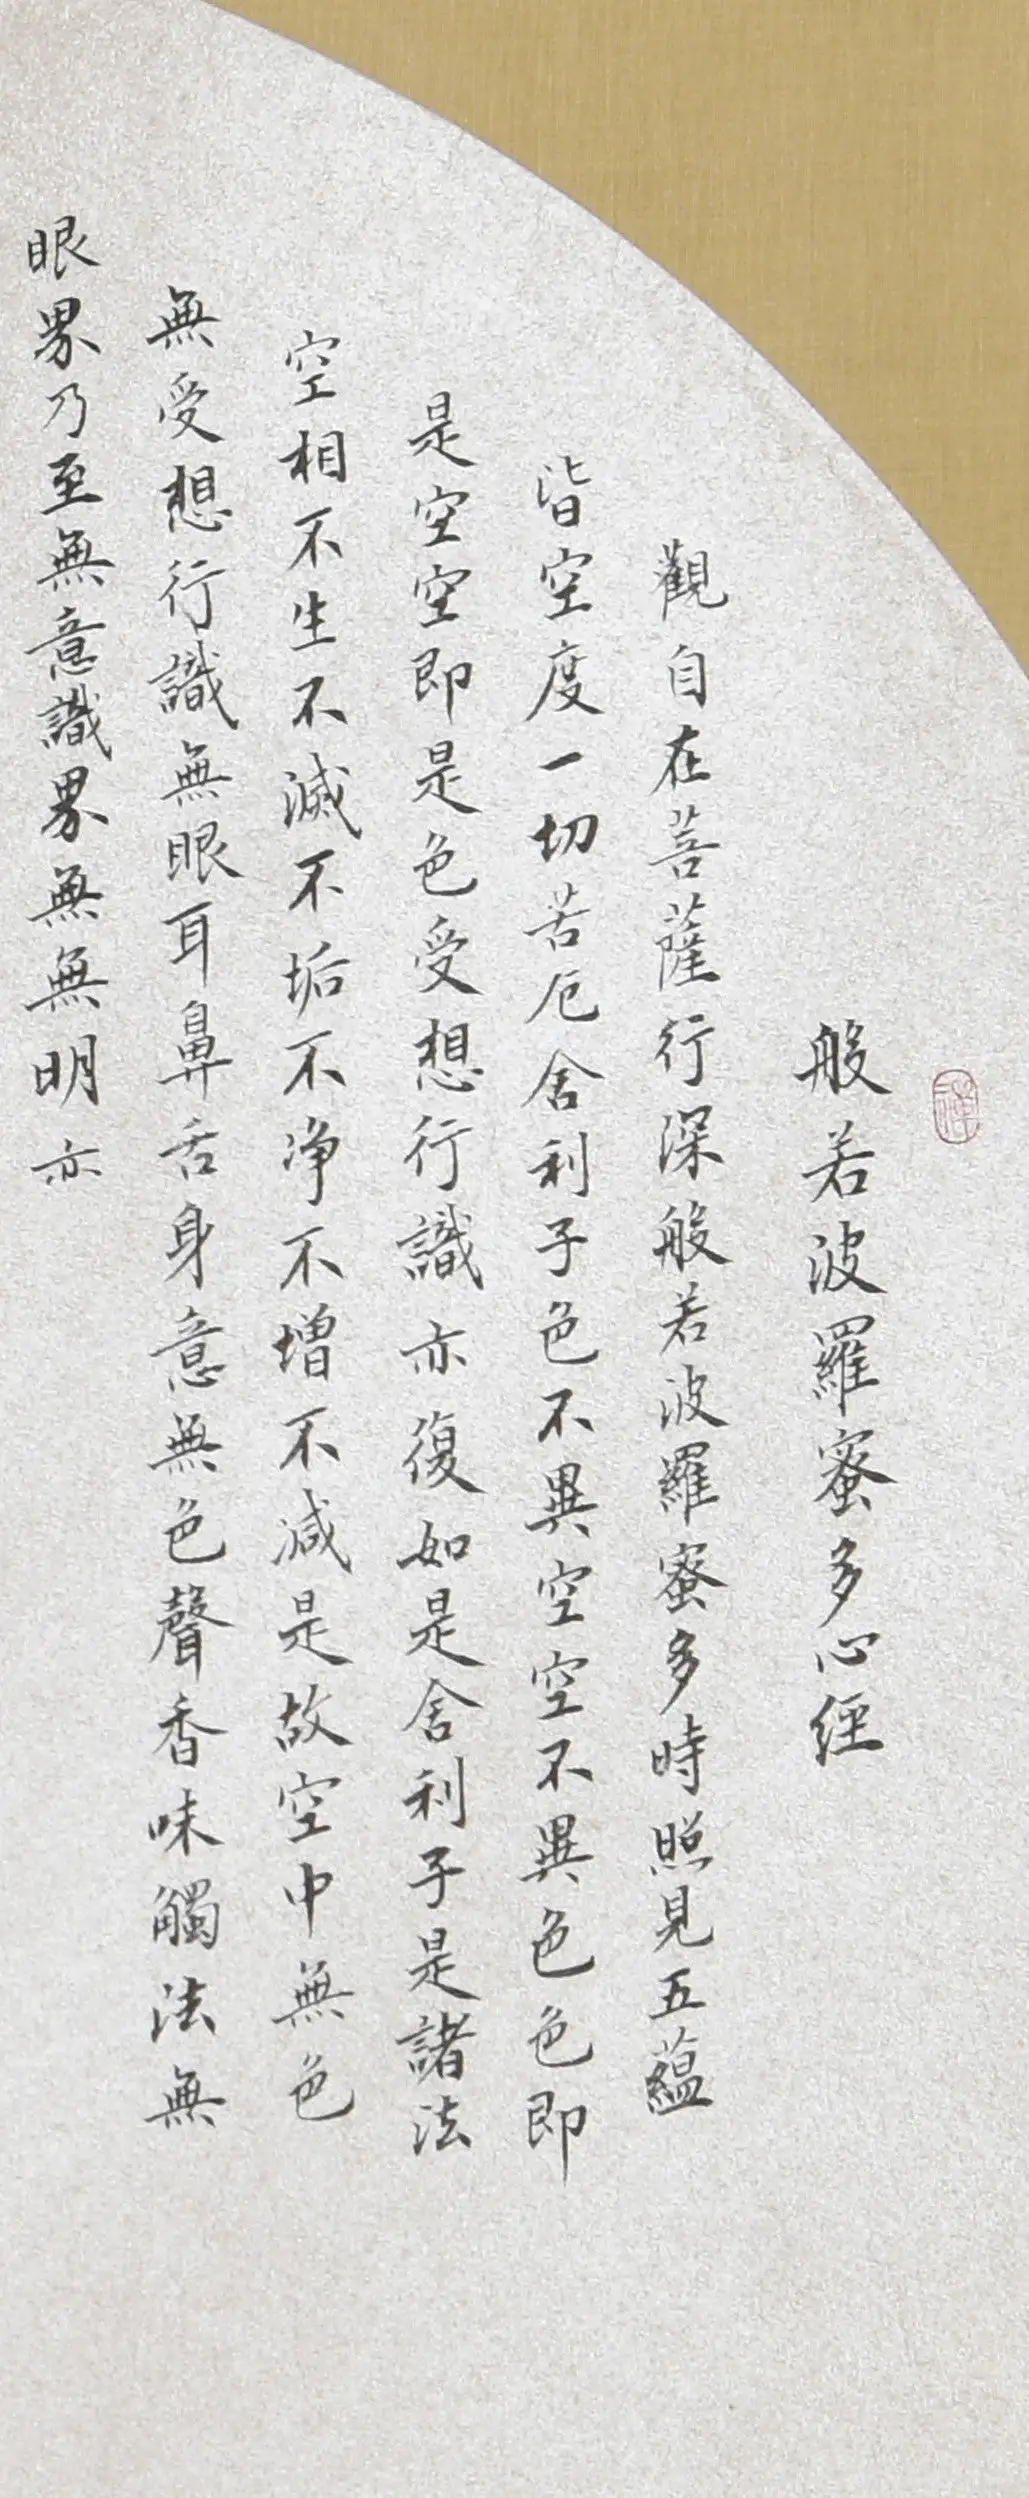 般若波羅蜜多心經
觀自在菩薩行深般若波羅蜜多時照見五蘊
皆空度一切苦厄舍利子色不異空空不異色色即
是空空即是色受想行識亦復如是舍利子是諸法
空相不生不滅不垢不净不增不減是故空中無色
無受想行識無眼耳鼻舌身意無色聲香味觸法無
眼界乃至無意識界無無明亦